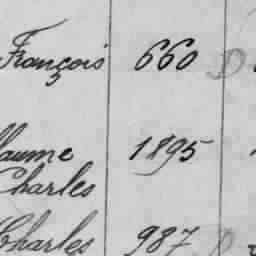 François 660 D
laume 1895
Charles
Charles 987